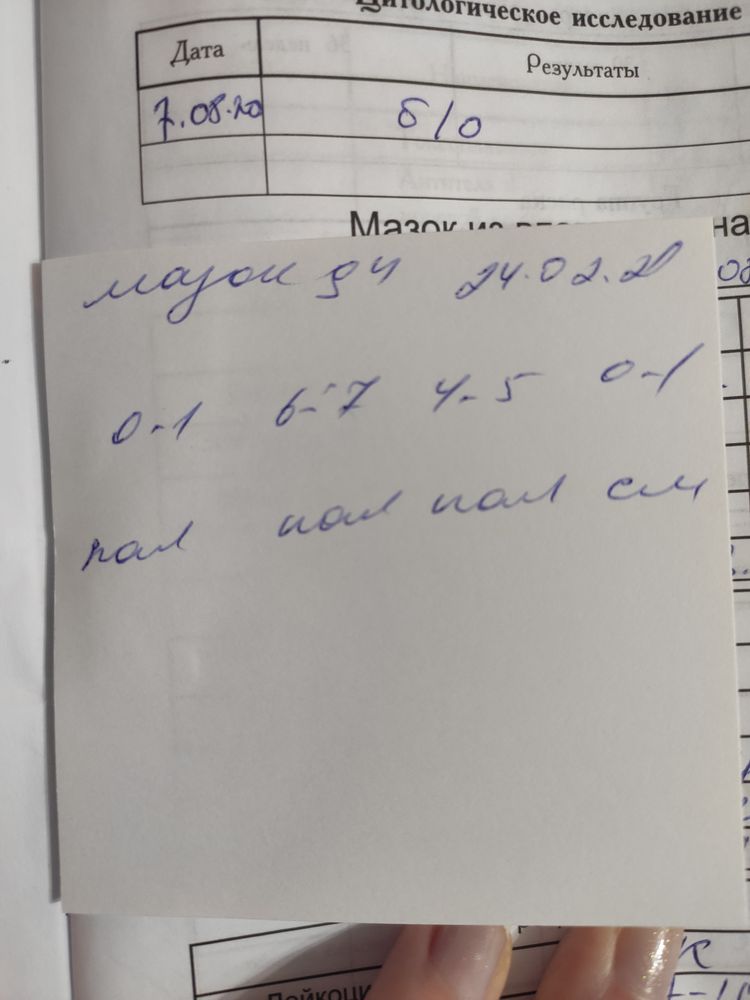 Цитологическое исследование
Дата Результаты
7.08.20 б/о
Мазок из
мазок 24.02.20
0-1 6-7 4-5 0-1
пал пал пал см